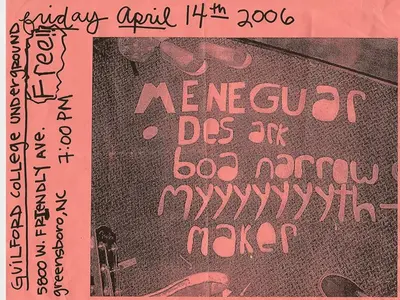 friday April 14th 2006
GUILFORD COLLEGE UNDERGROUND
Free!!
5800 W. FRIENDLY AVE.
greensboro, NC
7:00 PM
MENEGUAR
Des ark
boa narrow
myyyyyyyth-
maker